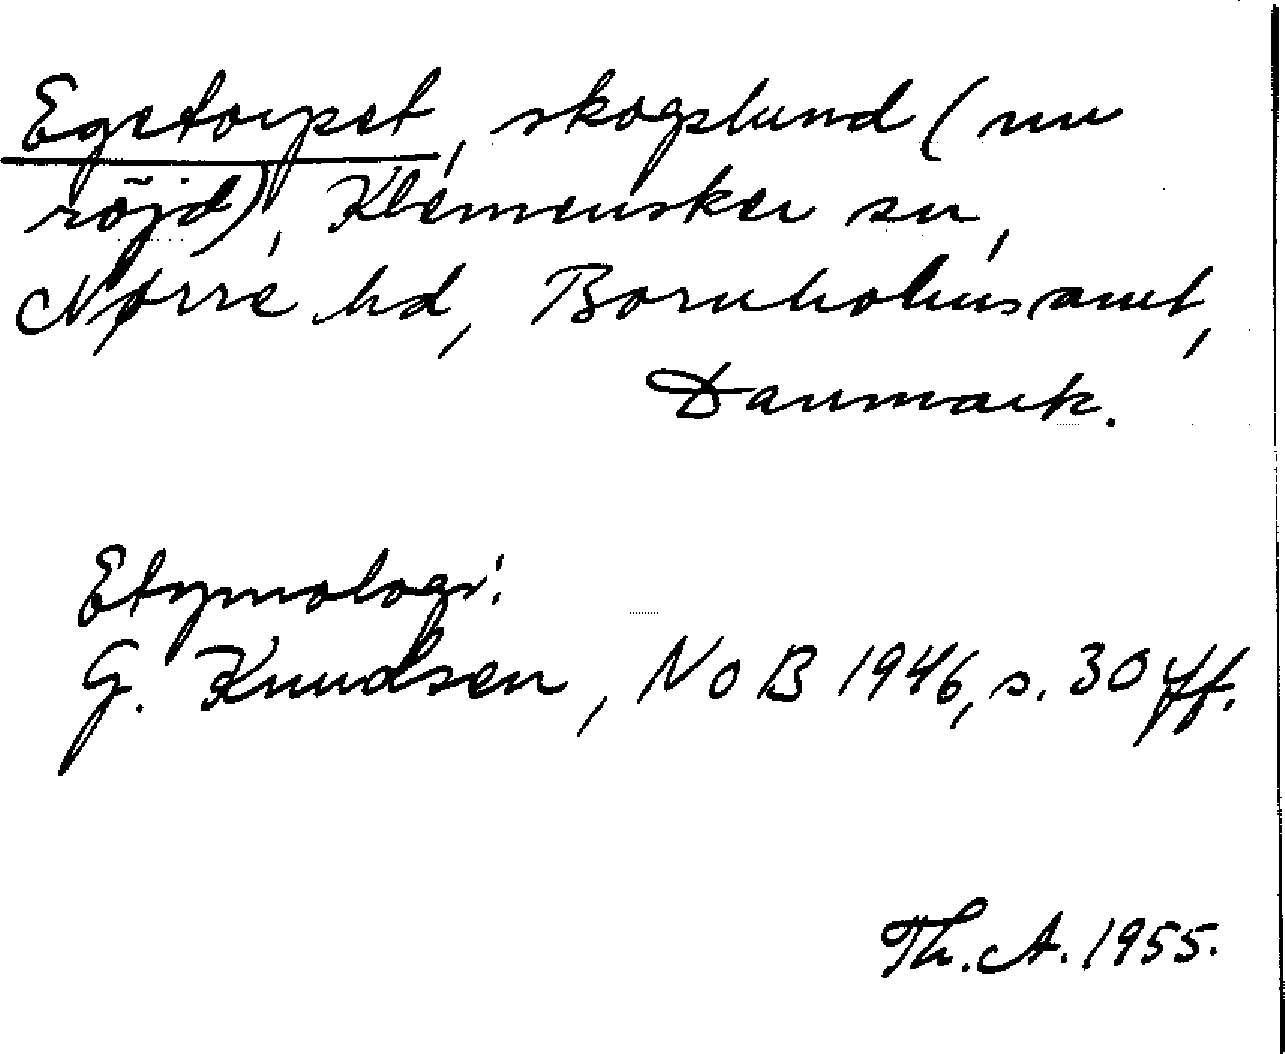 Egetorpet, skogslund (nu
röjd), Klemensker sn,
Nørre hd, Bornholms amt,
Danmark.
Etymologi:
G. Knudsen, NoB 1946, s. 30 ff.
Th. A. 1955.